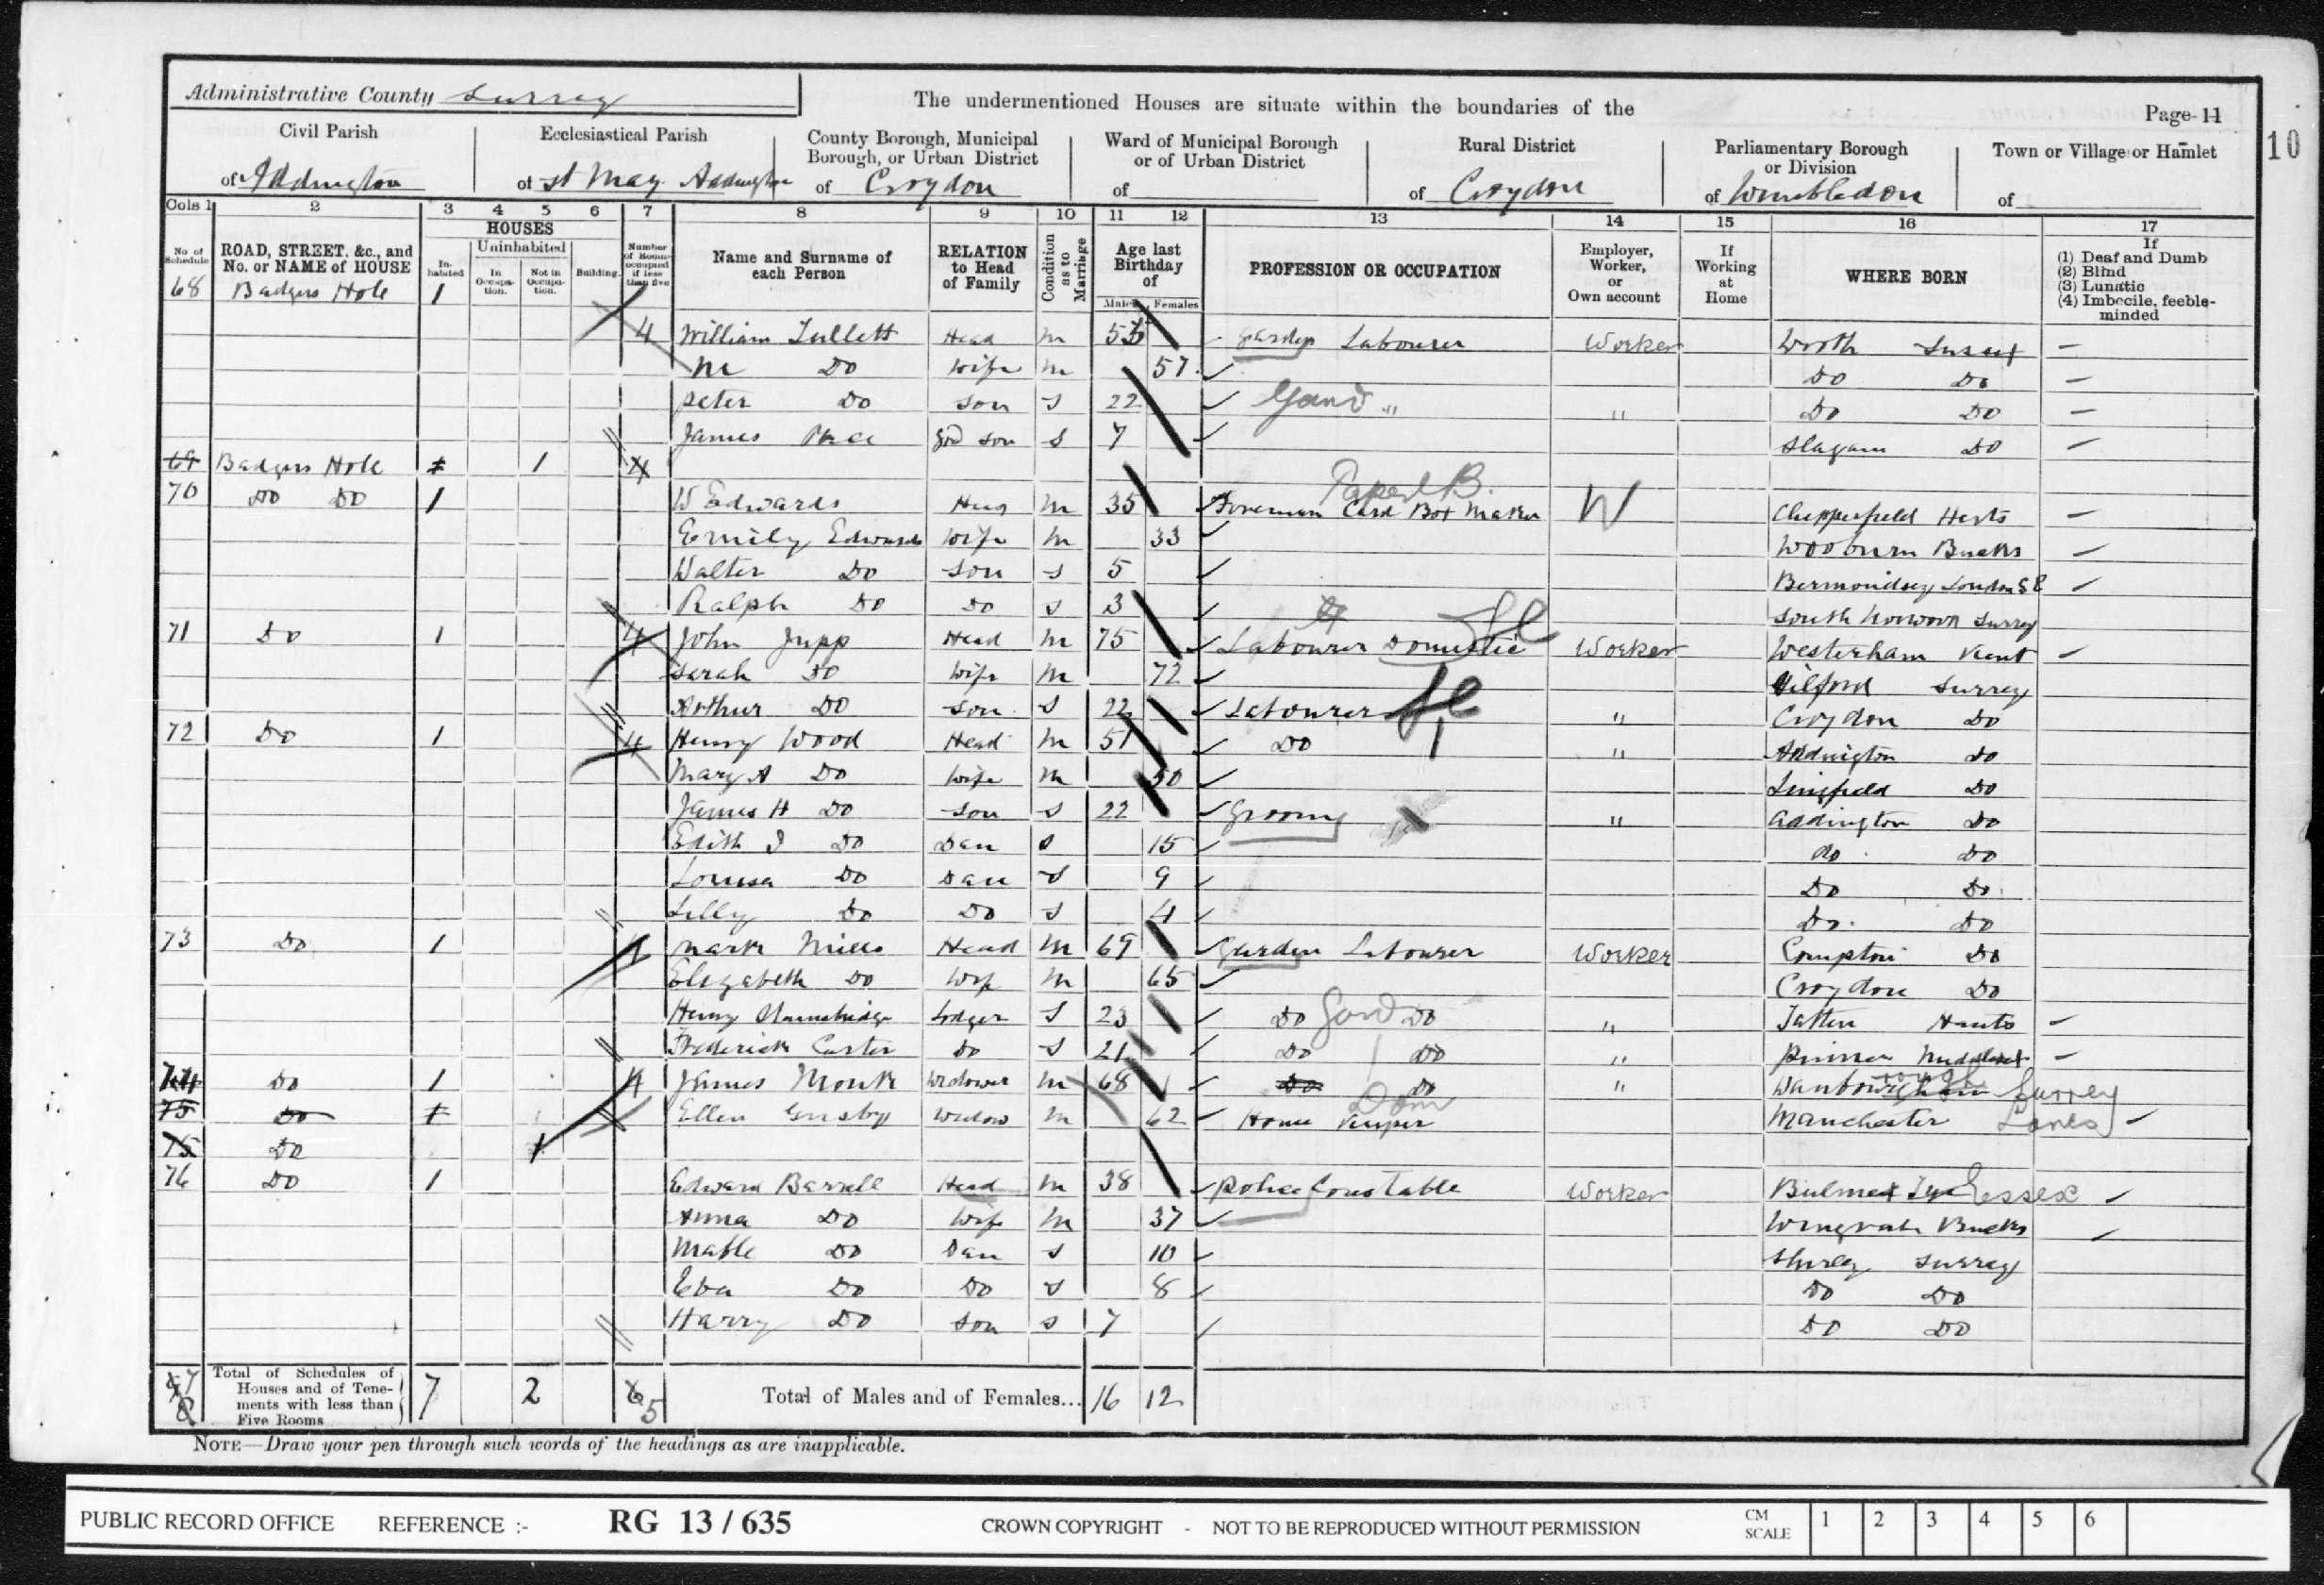 Administrative County Surrey
The undermentioned Houses are situate within the boundaries of the
Page 11
10
Civil Parish of Addington
Ecclesiastical Parish of St Mary Addington
County Borough, Municipal Borough, or Urban District of Croydon
Ward of Municipal Borough or of Urban District of
Rural District of Croydon
Parliamentary Borough or Division of Wimbledon
Town or Village or Hamlet of
Cols 1 2 3 4 5 6 7 8 9 10 11 12 13 14 15 16 17
No of Schedule
ROAD, STREET, &c., and No. or NAME of HOUSE
HOUSES
Inhabited
Uninhabited
In Occupation.
Not in Occupation.
Building
Number of Rooms occupied if less than five
Name and Surname of each Person
RELATION to Head of Family
Condition as to Marriage
Age last Birthday of
Males Females
PROFESSION OR OCCUPATION
Employer, Worker, or Own account
If Working at Home
WHERE BORN
If
(1) Deaf and Dumb
(2) Blind
(3) Lunatic
(4) Imbecile, feeble-minded
68 Badgers Hole 1
4 William Tullett Head M 55 Garden Labourer Worker Worth Sussex –
M Do Wife M 57 Do Do –
Peter Do Son S 22 Gard " " Do Do –
James Son S 7 Do –
69 Badgers Hole 1 4
70 Do Do 1 W Edwards M 35 Foreman Card Box Maker Paper B. W Chipperfield Herts –
Emily Edwards Wife M 33 Wooburn Bucks
Walter Do Son S 5 Bermondsey London SE
Ralph Do Do S 3 South Norwood Surrey
71 Do 1 4 John Jupp Head M 75 Labourer Domestic Worker Westerham Kent –
Sarah Do Wife M 72 Surrey
Arthur Do Son S 22 Labourer " Croydon Do
72 Do 1 4 Henry Wood Head M 51 Do " Addington Do
Mary A Do Wife M 50 Lingfield Do
James H Do Son S 22 Groom " Addington Do
Edith J Do Dau S 15 Do Do
Louisa Do Dau S 9 Do Do
Lilly Do Do S 4 Do Do
73 Do 1 4 Mark Mills Head M 69 Garden Labourer Worker Compton Do
Elizabeth Do Wife M 65 Croydon Do
Henry Lodger S 23 Do Gard Do " Hants –
Frederick Carter Do S 21 Do Do " Pinner Middlesex –
74 Do 1 4 James Monk Widower M 68 Do Do " Surrey
75 Do Ellen Widow M 62 House Keeper Dom Manchester Lancs
75 Do 1
76 Do 1 Edward Barrell Head M 38 Police Constable Worker Bulmer Tye Essex
Anna Do Wife M 37 Wingrave Bucks
Mable Do Dau S 10 Shirley Surrey
Eva Do Do S 8 Do Do
Harry Do Son S 7 Do Do
Total of Schedules of Houses and of Tenements with less than Five Rooms 7 2 5
Total of Males and of Females... 16 12
NOTE—Draw your pen through such words of the headings as are inapplicable.
PUBLIC RECORD OFFICE REFERENCE :- RG 13 / 635
CROWN COPYRIGHT - NOT TO BE REPRODUCED WITHOUT PERMISSION
CM SCALE 1 2 3 4 5 6